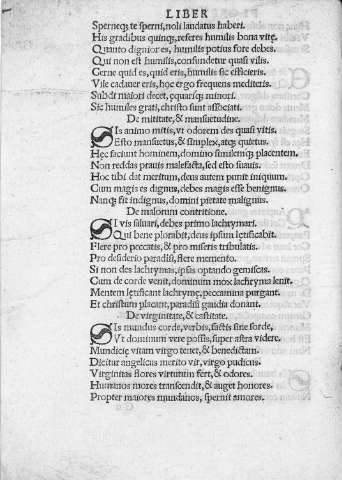 LIBER
Sperneq; te sperni, noli laudatus haberi.
His gradibus quinq; referes humilis bona vitę.
Quanto dignior es, humilis potius fore debes.
Qui non est humilis, confundetur quasi vilis.
Cerne quid es, quid eris, humilis sic efficieris.
Vile cadauer eris, hoc ergo frequens mediteris.
Subdi maiori decet, equarisq; minori.
Sic humiles grati, christo sunt associati.
De mititate, & mansuetudine.
SIs animo mitis, vt odorem des quasi vitis.
Esto mansuetus, & simplex, atq; quietus.
Hęc faciunt hominem, domino similemq; placentem.
Non reddas prauis malefacta, sed esto suauis.
Hoc tibi dat meritum, deus autem punit iniquum.
Cum magis es dignus, debes magis esse benignus.
Nanq; fit indignus, domini pietate malignus.
De malorum contritione.
SI vis saluari, debes primo lachrymari.
Qui bene plorabit, deus ipsum lętificabit.
Flere pro peccatis, & pro miseris tribulatis.
Pro desiderio paradisi, flere memento.
Si non des lachrymas, ipsas optando gemiscas.
Cum de corde venit, dominum mox lachryma lenit.
Mentem lętificant lachrymę, peccamina purgant.
Et christum placant, paradisi gaudia donant.
De virginitate, & castitate.
SIs mundus corde, verbis, factis sine sorde,
Vt dominum vere possis, super astra videre.
Mundicię vitam virgo tenet, & benedictam.
Dicitur angelicus merito vir, virgo pudicus.
Virginitas flores virtutum fert, & odores.
Humanos mores transcendit, & auget honores.
Propter maiores mundanos, spernit amores.